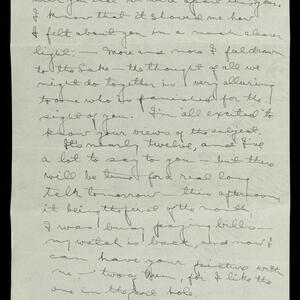 I know that it showed me how
I felt about you in a much clearer
light. — More and more I feel drawn
to the Lake — the thought of all we
might do together is very alluring
to one who is famished for the
sight of you. I'm all excited to
know your views of the subject.
It's nearly twelve, and I've
a lot to say to you — but there
will be time for a real long
talk tomorrow — this afternoon
it being the first of the month
I was busy paying bills —
my watch is back, and now I
can have your picture with
me — two of them, for I like the
one in the